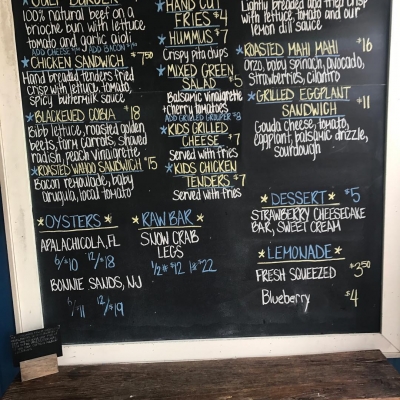 100% natural beef on a
brioche bun with lettuce
tomato and garlic aioli
ADD CHEESE $1 ADD BACON $1
CHICKEN SANDWICH $7.50
Hand breaded tenders fried
crisp with lettuce, tomato,
spicy buttermilk sauce
BLACKENED COBIA $18
Bibb lettuce, roasted golden
beets, farm carrots, shaved
radish, peach vinaigrette
ROASTED WAHOO SANDWICH $15
Bacon remoulade, baby
arugula, local tomato
HAND CUT
FRIES $4
HUMMUS $7
Crispy pita chips
MIXED GREEN
SALAD $5
Balsamic vinaigrette
+ cherry tomatoes
ADD GRILLED GROUPER $8
KIDS GRILLED
CHEESE $7
Served with fries
KIDS CHICKEN
TENDERS $7
Served with fries
Lightly breaded and fried crisp
with lettuce, tomato and our
lemon dill sauce
ROASTED MAHI MAHI $16
Orzo, baby spinach, avocado,
strawberries, cilantro
GRILLED EGGPLANT
SANDWICH $11
Gouda cheese, tomato,
eggplant, balsamic drizzle,
sourdough
OYSTERS
APALACHICOLA, FL
6/$10 12/$18
BONNIE SANDS, NJ
6/$11 12/$19
RAW BAR
SNOW CRAB
LEGS
1/2# $12 1# $22
DESSERT $5
STRAWBERRY CHEESECAKE
BAR, SWEET CREAM
LEMONADE
FRESH SQUEEZED $3.50
Blueberry $4